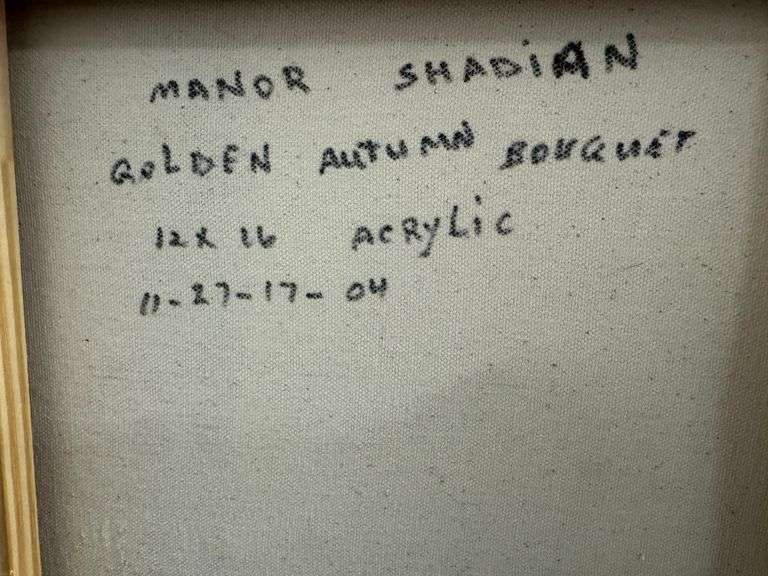 MANOR SHADiAN
GOLDEN AUTUMN BOUQUET
12 x 16 ACRyLiC
11-27-17-04